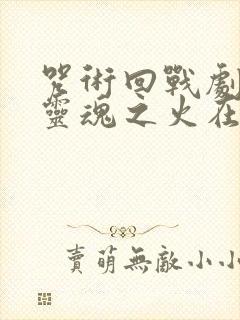 咒術回戰劇
靈魂之火在
賣萌無敵小小